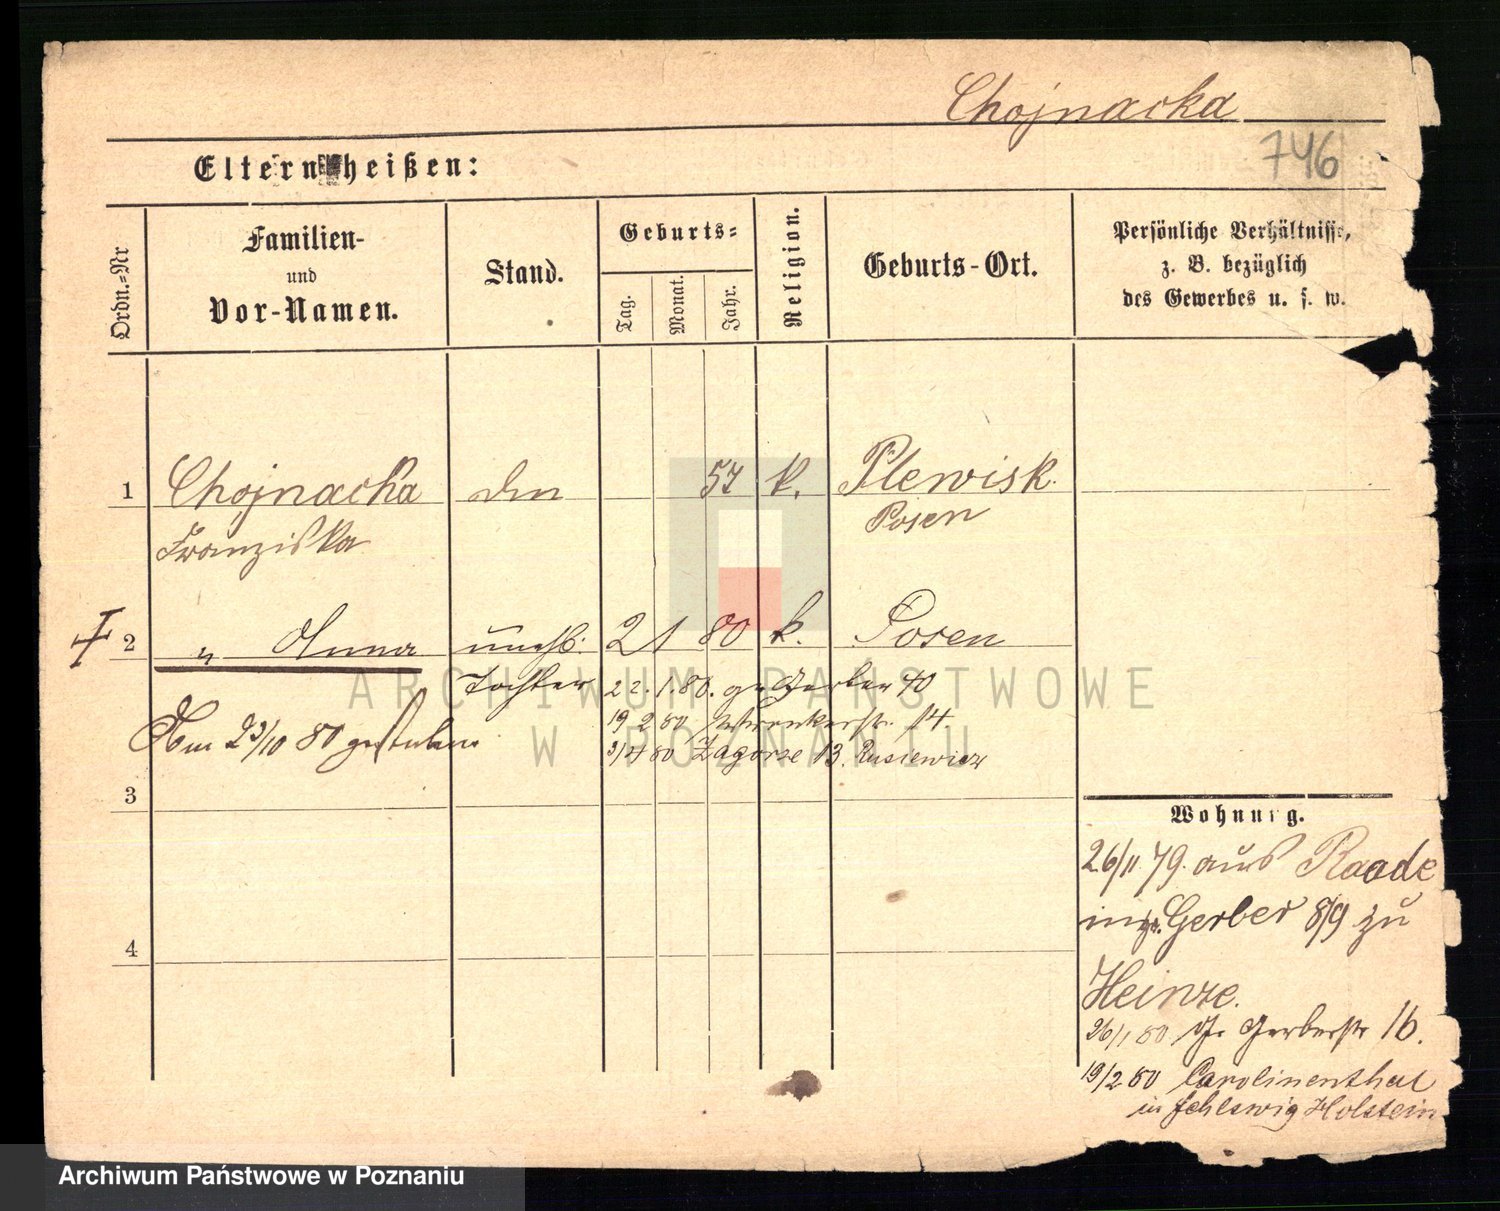 Chojnacka
746
Eltern heißen:
Ordn.=Nr
Familien-
und
Vor-Namen.
Stand.
Geburts=
Tag.
Monat.
Jahr.
Religion.
Geburts-Ort.
Persönliche Verhältnisse,
z. B. bezüglich
des Gewerbes u. s. w.
1 Chojnacka 57 k. Plewisk
Franziska Posen
2 " Anna unehl. 21 80 k. Posen
Tochter 22.1.80. gr Gerber 40
19 2 80 14
Am 23/10 80 gestorben
Zagorze 13. Rusiewicz
3
4
Wohnung.
26/11 79. aus Raade
Gerber 8/9 zu
Heinze.
26/1 80 Gr Gerberstr 16.
19/2 80 Carolinenthal
in Schleswig Holstein
ARCHIWUM PAŃSTWOWE
W POZNANIU
Archiwum Państwowe w Poznaniu